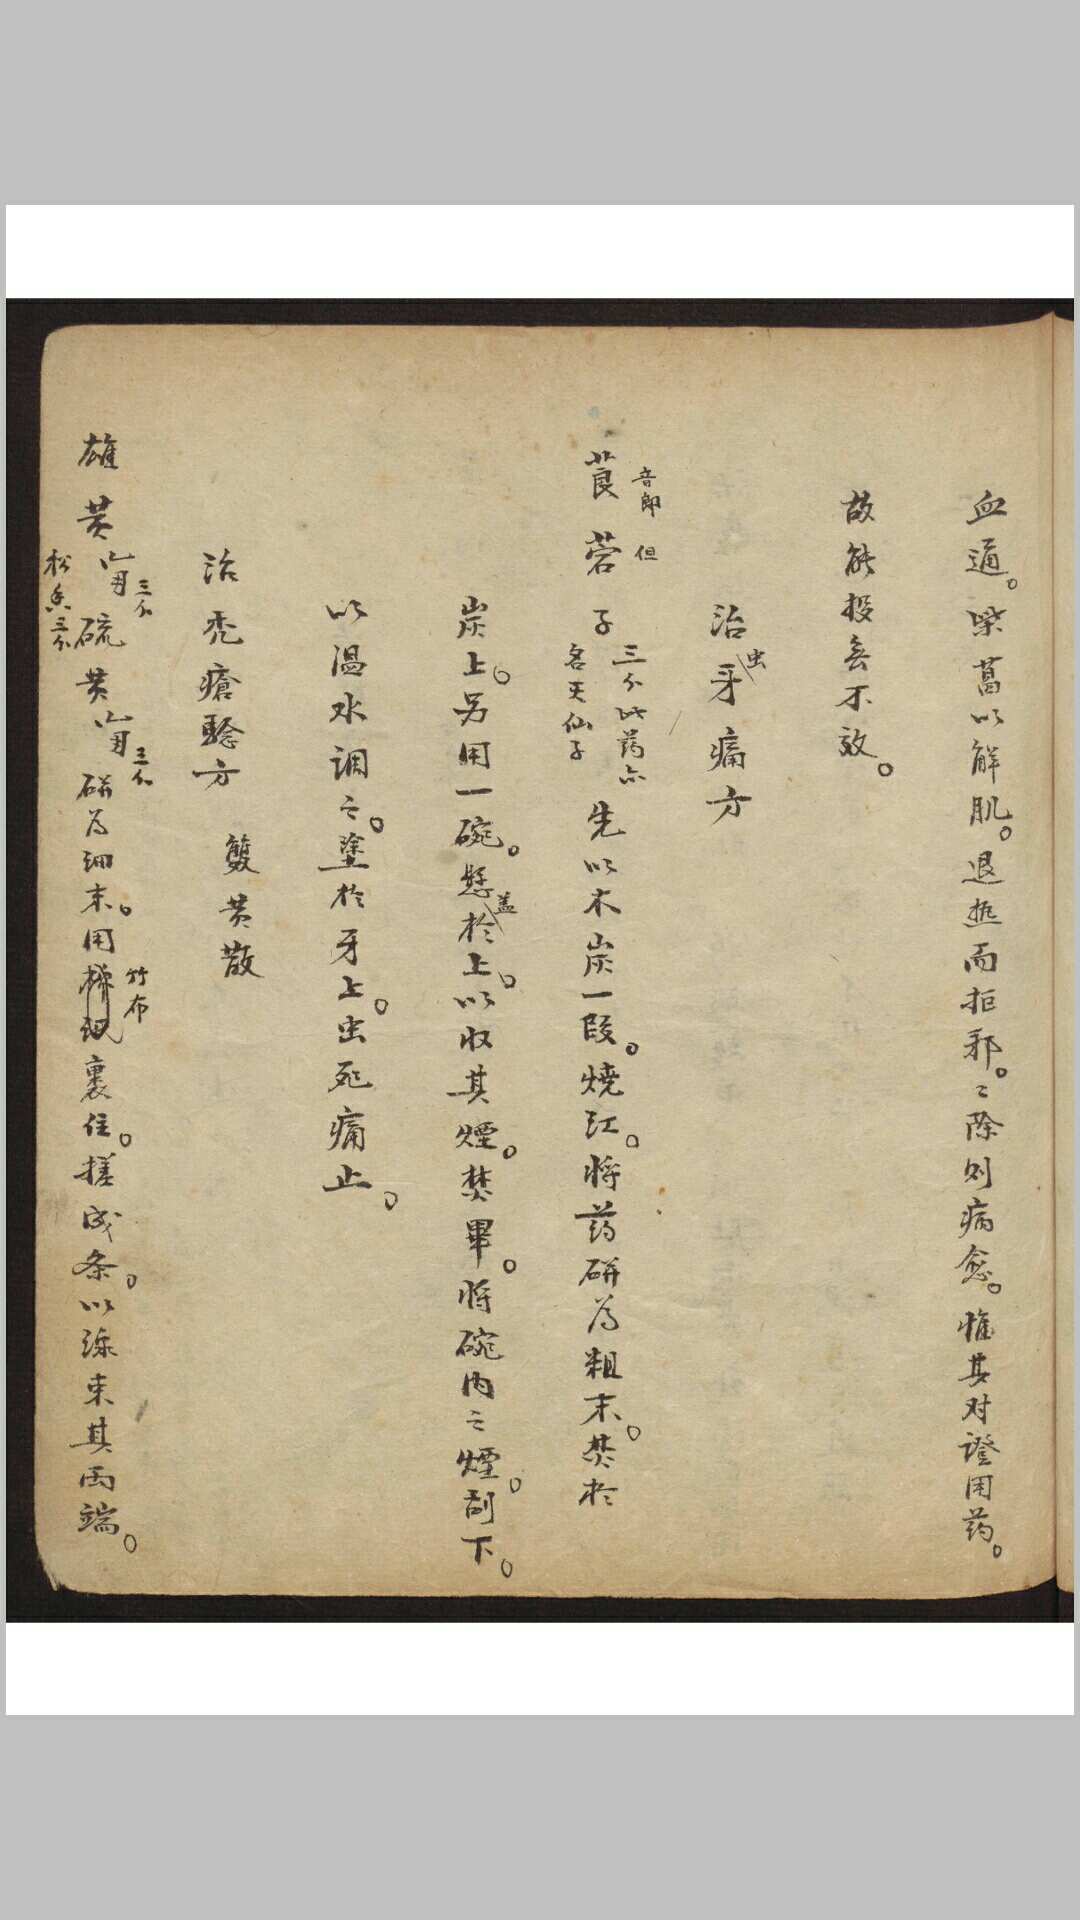 血通。柴葛以解肌。退热而拒邪。〻除则病愈。惟其对證用药。
故能投無不效。
治虫牙痛方
莨菪子 音郎 但 三分此药亦名天仙子 先以木炭一段。燒红。将药研為粗末。焚於
炭上。另用一碗。懸盖於上。以收其煙。焚畢。将碗内之煙。刮下。
以温水调之。塗於牙上。虫死痛止。
治秃瘡驗方 雙黄散
雄黄 三分 硫黄 三分 松香三分 研為细末。用竹布裹住。搓成条。以綵束其两端。